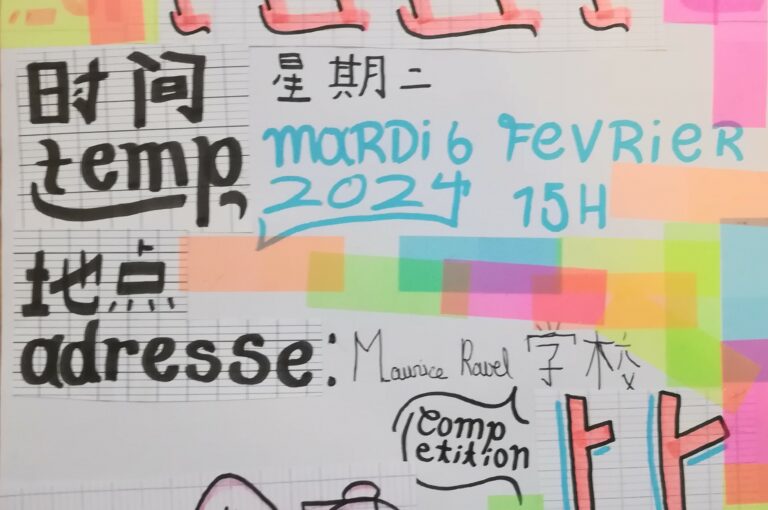 时间
星期二
temp,
MARDI 6 FEVRIER
2024 15H
地点
adresse: Maurice Ravel 学校
Comp
etition